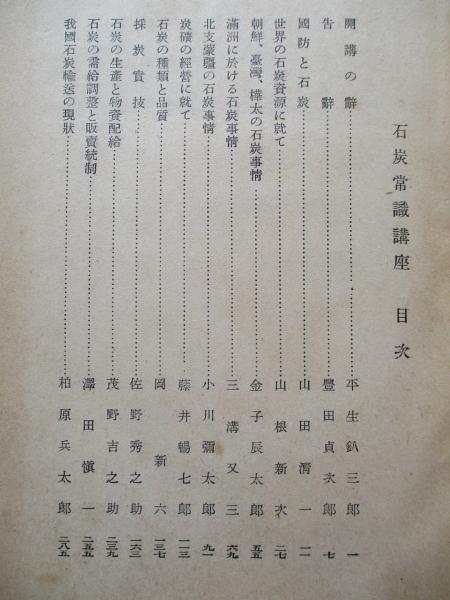 石炭常識講座 目次
開講の辭…平生釟三郎 一
告辭…豐田貞次郎 七
國防と石炭…山田淸一 一一
世界の石炭資源に就て…山根新次 二七
朝鮮、臺灣、樺太の石炭事情…金子辰太郎 五五
滿洲に於ける石炭事情…三溝又三 六九
北支蒙疆の石炭事情…小川彌太郎 九一
炭礦の經營に就て…藤井暢七郎 一一三
石炭の種類と品質…岡新六 一三七
採炭實技…佐野秀之助 一六三
石炭の生產と物資配給…茂野吉之助 二三九
石炭の需給調整と販賣統制…澤田愼一 二五五
我國石炭輸送の現狀…柏原兵太郎 二八五